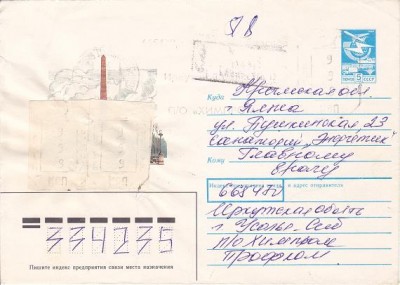 ПВ
ПОЧТА
СССР
Куда Крымская обл.
г. Ялта
ул. Пушкинская 23
санаторий "Энергетик"
Кому Главному
врачу
Индекс и адрес отправителя
665470
Иркутская область
г. Усолье-Сиб
п/о Химпром
Профком
334235
Пишите индекс предприятия связи места назначения